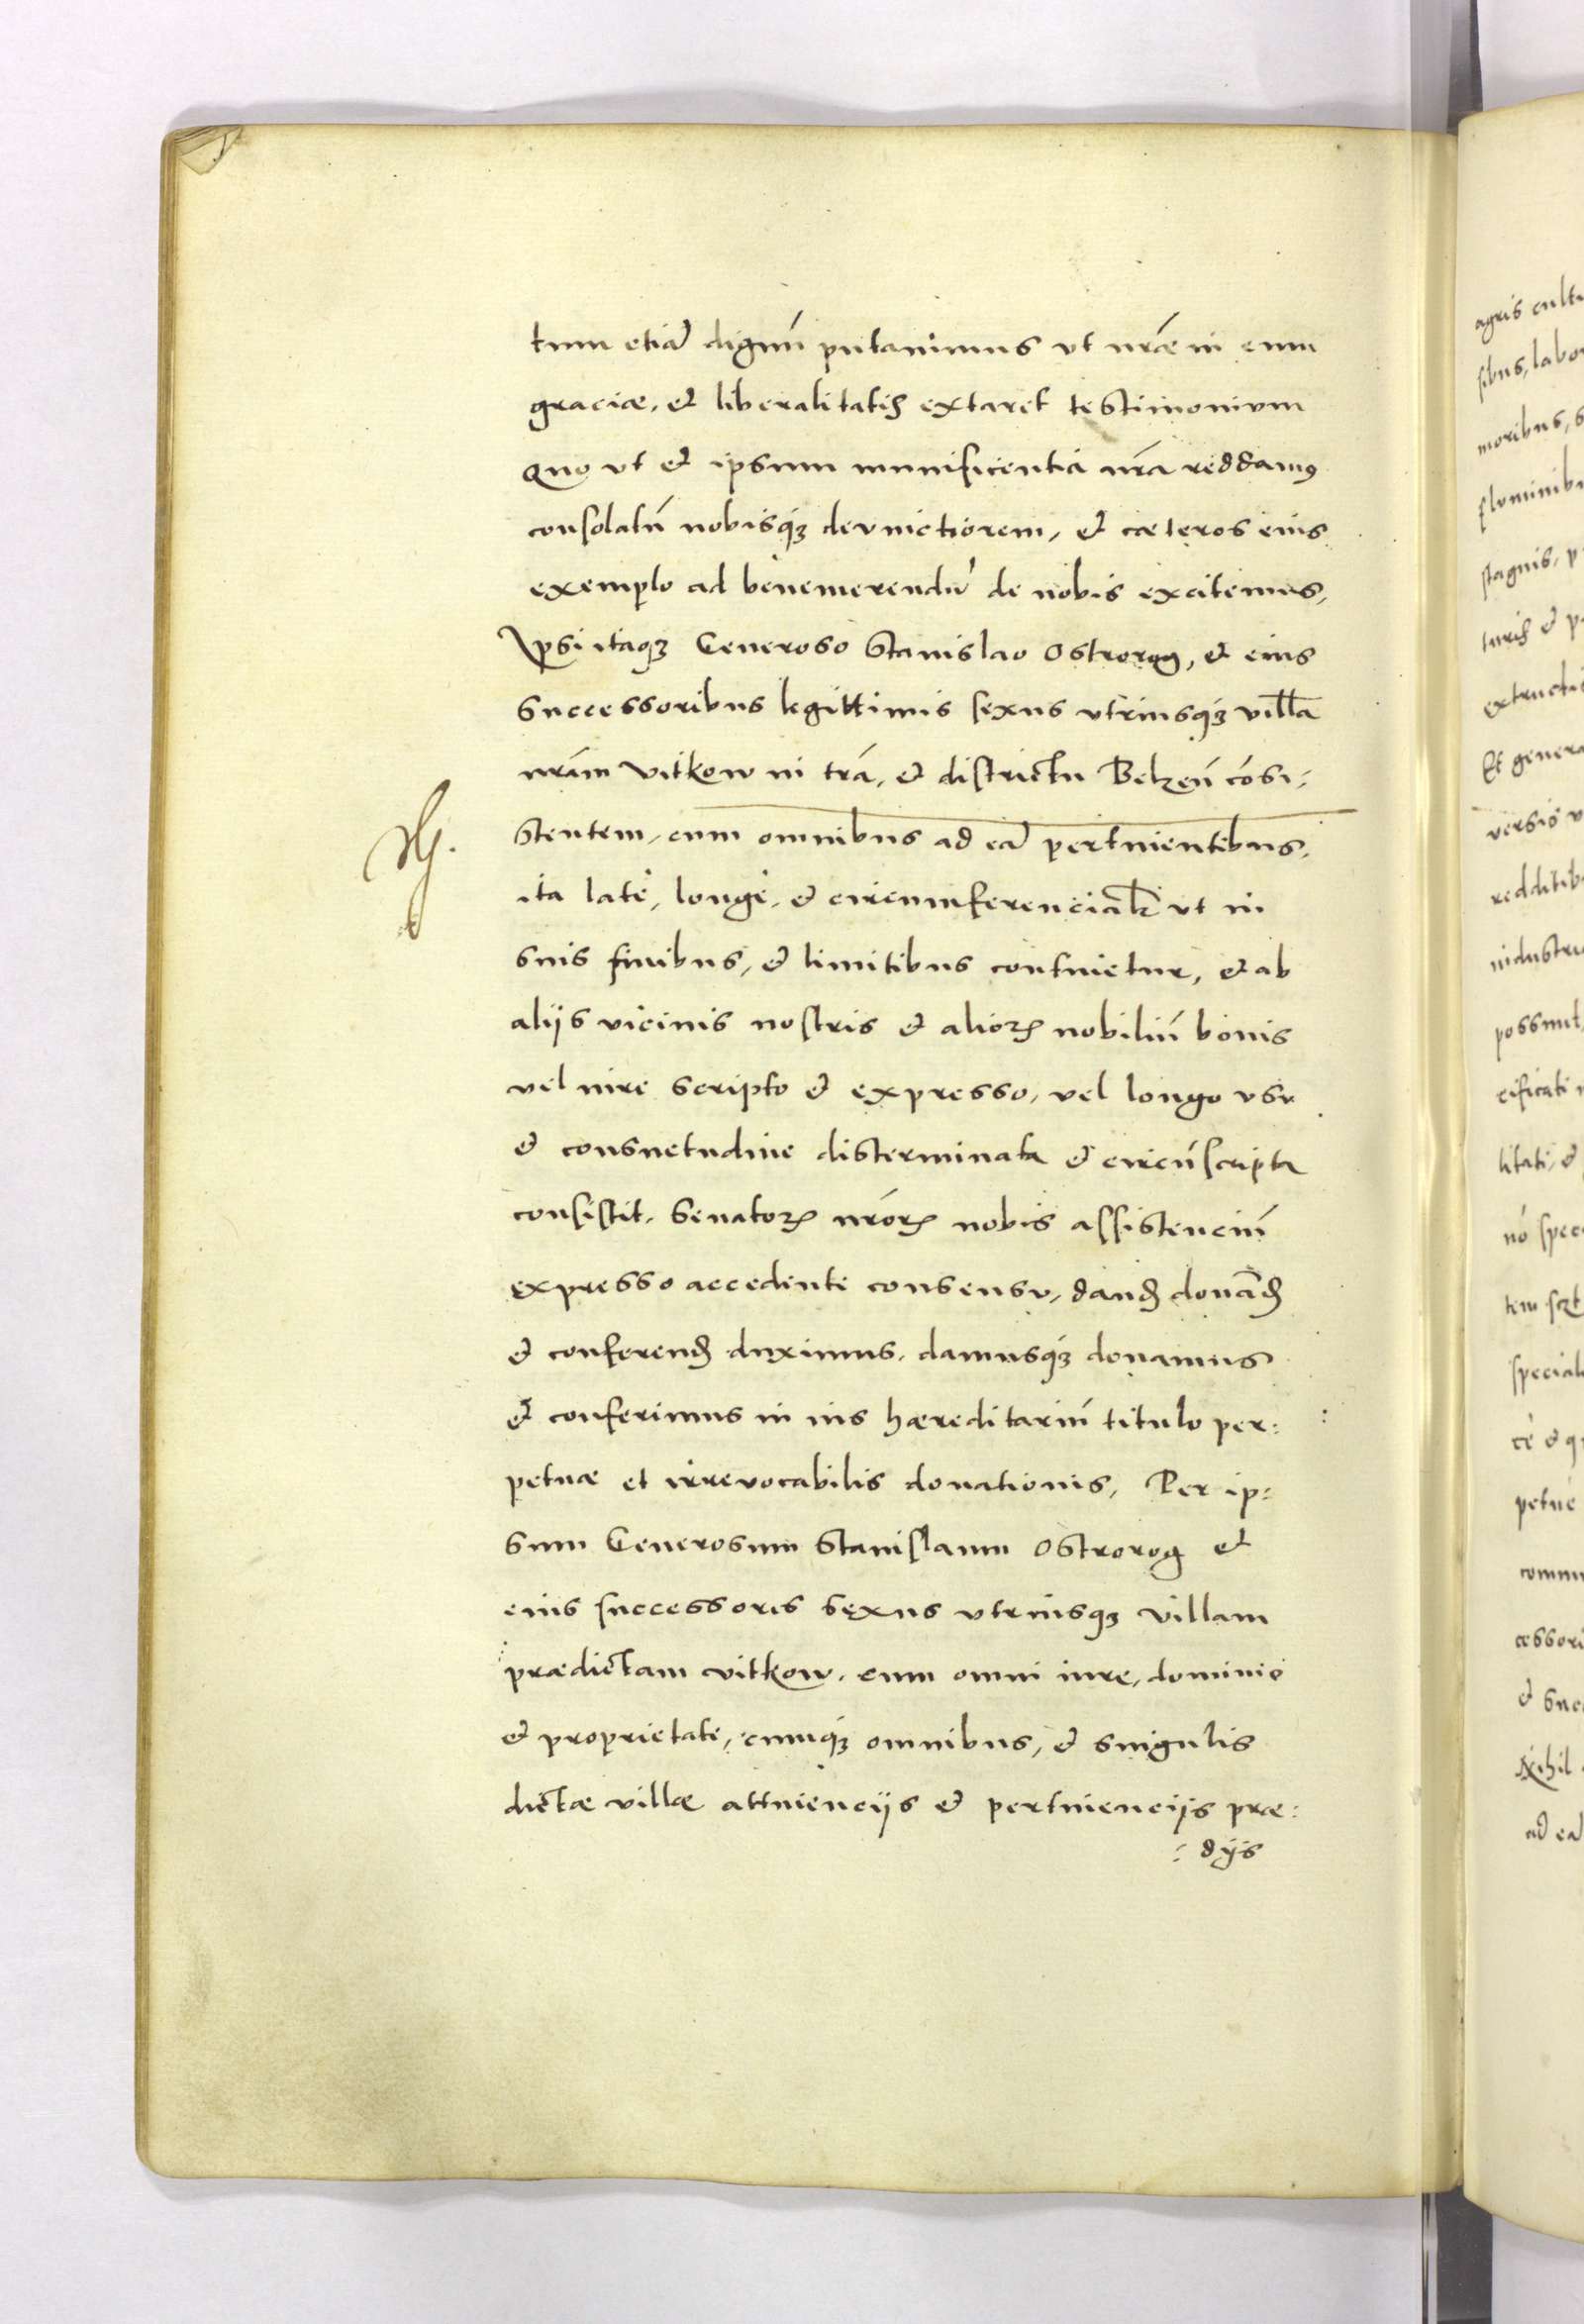 tum etiā dignū putavimus ut nr̄ae in eum
graciae, et liberalitatis extaret testimonium
Quo ut et ipsum munificentia nr̄a reddamus
consolatū nobisq3 devinctiorem, et caeteros eius
exemplo ad benemerendū de nobis excitemus,
Ipsi itaq3 Generoso Stanislao Ostrorog, et eius
Successoribus legittimis sexus utriusq3 villā
nr̄am Vitkow in tr̄a, et districtu Belzeñ cōsi:
stentem, cum omnibus ad eā pertinentibus,
ita latè, longè, et circumferencialr̄ ut in
suis finibus, et limitibus continetur, et ab
aliis vicinis nostris et aliorꝝ nobiliū bonis
vel iure scripto et expresso, vel longo usu
et consuetudine disterminata et circūscripta
consistit. Senatorꝝ nr̄orꝝ nobis assistenciū
expresso accedente consensu, dand̄ donād̄
et conferend̄ duximus, damusq3 donamus
et conferimus in ius haereditariū titulo per:
petuae et irrevocabilis donationis, Per ip:
sum Generosum Stanislaum Ostrorog et
eius successores sexus utriusq3 villam
praedictam Vitkow, cum omni iure, dominio
et proprietate, cumq3 omnibus, et singulis
dictae villae attinenciis et pertinenciis prae:
:diis
agris cult
sibus, labo
moribus, s
fluminib
stagnis, p
turis et p
extructi
Et genera
versis v
redditib
industri
possunt,
cificati
litati, et
nō spec
tim
special
cè et q
petuè
commu
cessori
et suc
Nihil
ad eā